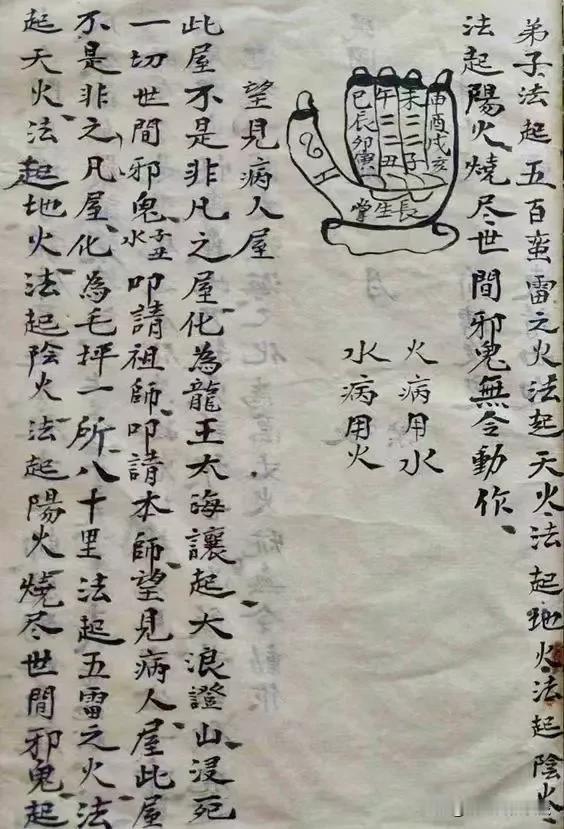 弟子法起五百蛮雷之火法起天火法起地火法起陰火
法起陽火燒尽世間邪鬼無令動作
申酉戌亥
未二二子
午二二丑
巳辰卯寅
長生掌
火病用水
水病用火
望見病人屋
此屋不是非凡之屋化為龍王太海讓起大浪證山浸死
一切世間邪鬼水子丑叩請祖師叩請本師望見病人屋此屋
不是非之凡屋化為毛坪一所八十里法起五雷之火法
起天火法起地火法起陰火法起陽火燒尽世間邪鬼起